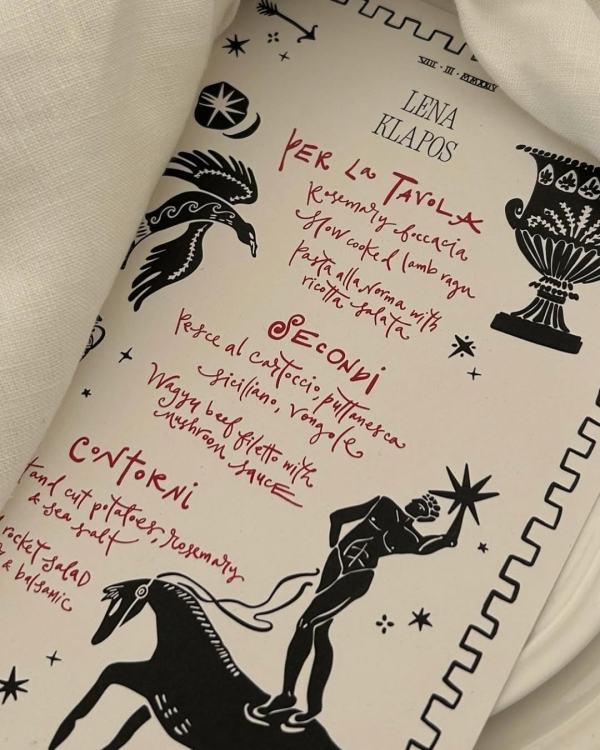 VIII · III · MMXXIV
LENA
KLAPOS
PER La TAVOLA
Rosemary foccacia
Slow cooked lamb ragu
Pasta alla norma with
ricotta salata
SECONDI
Pesce al cartoccio, puttanesca
siciliano, vongole
Wagyu beef filetto with
mushroom sauce
CONTORNI
cut potatoes, rosemary
& sea salt
rocket salad
& balsamic